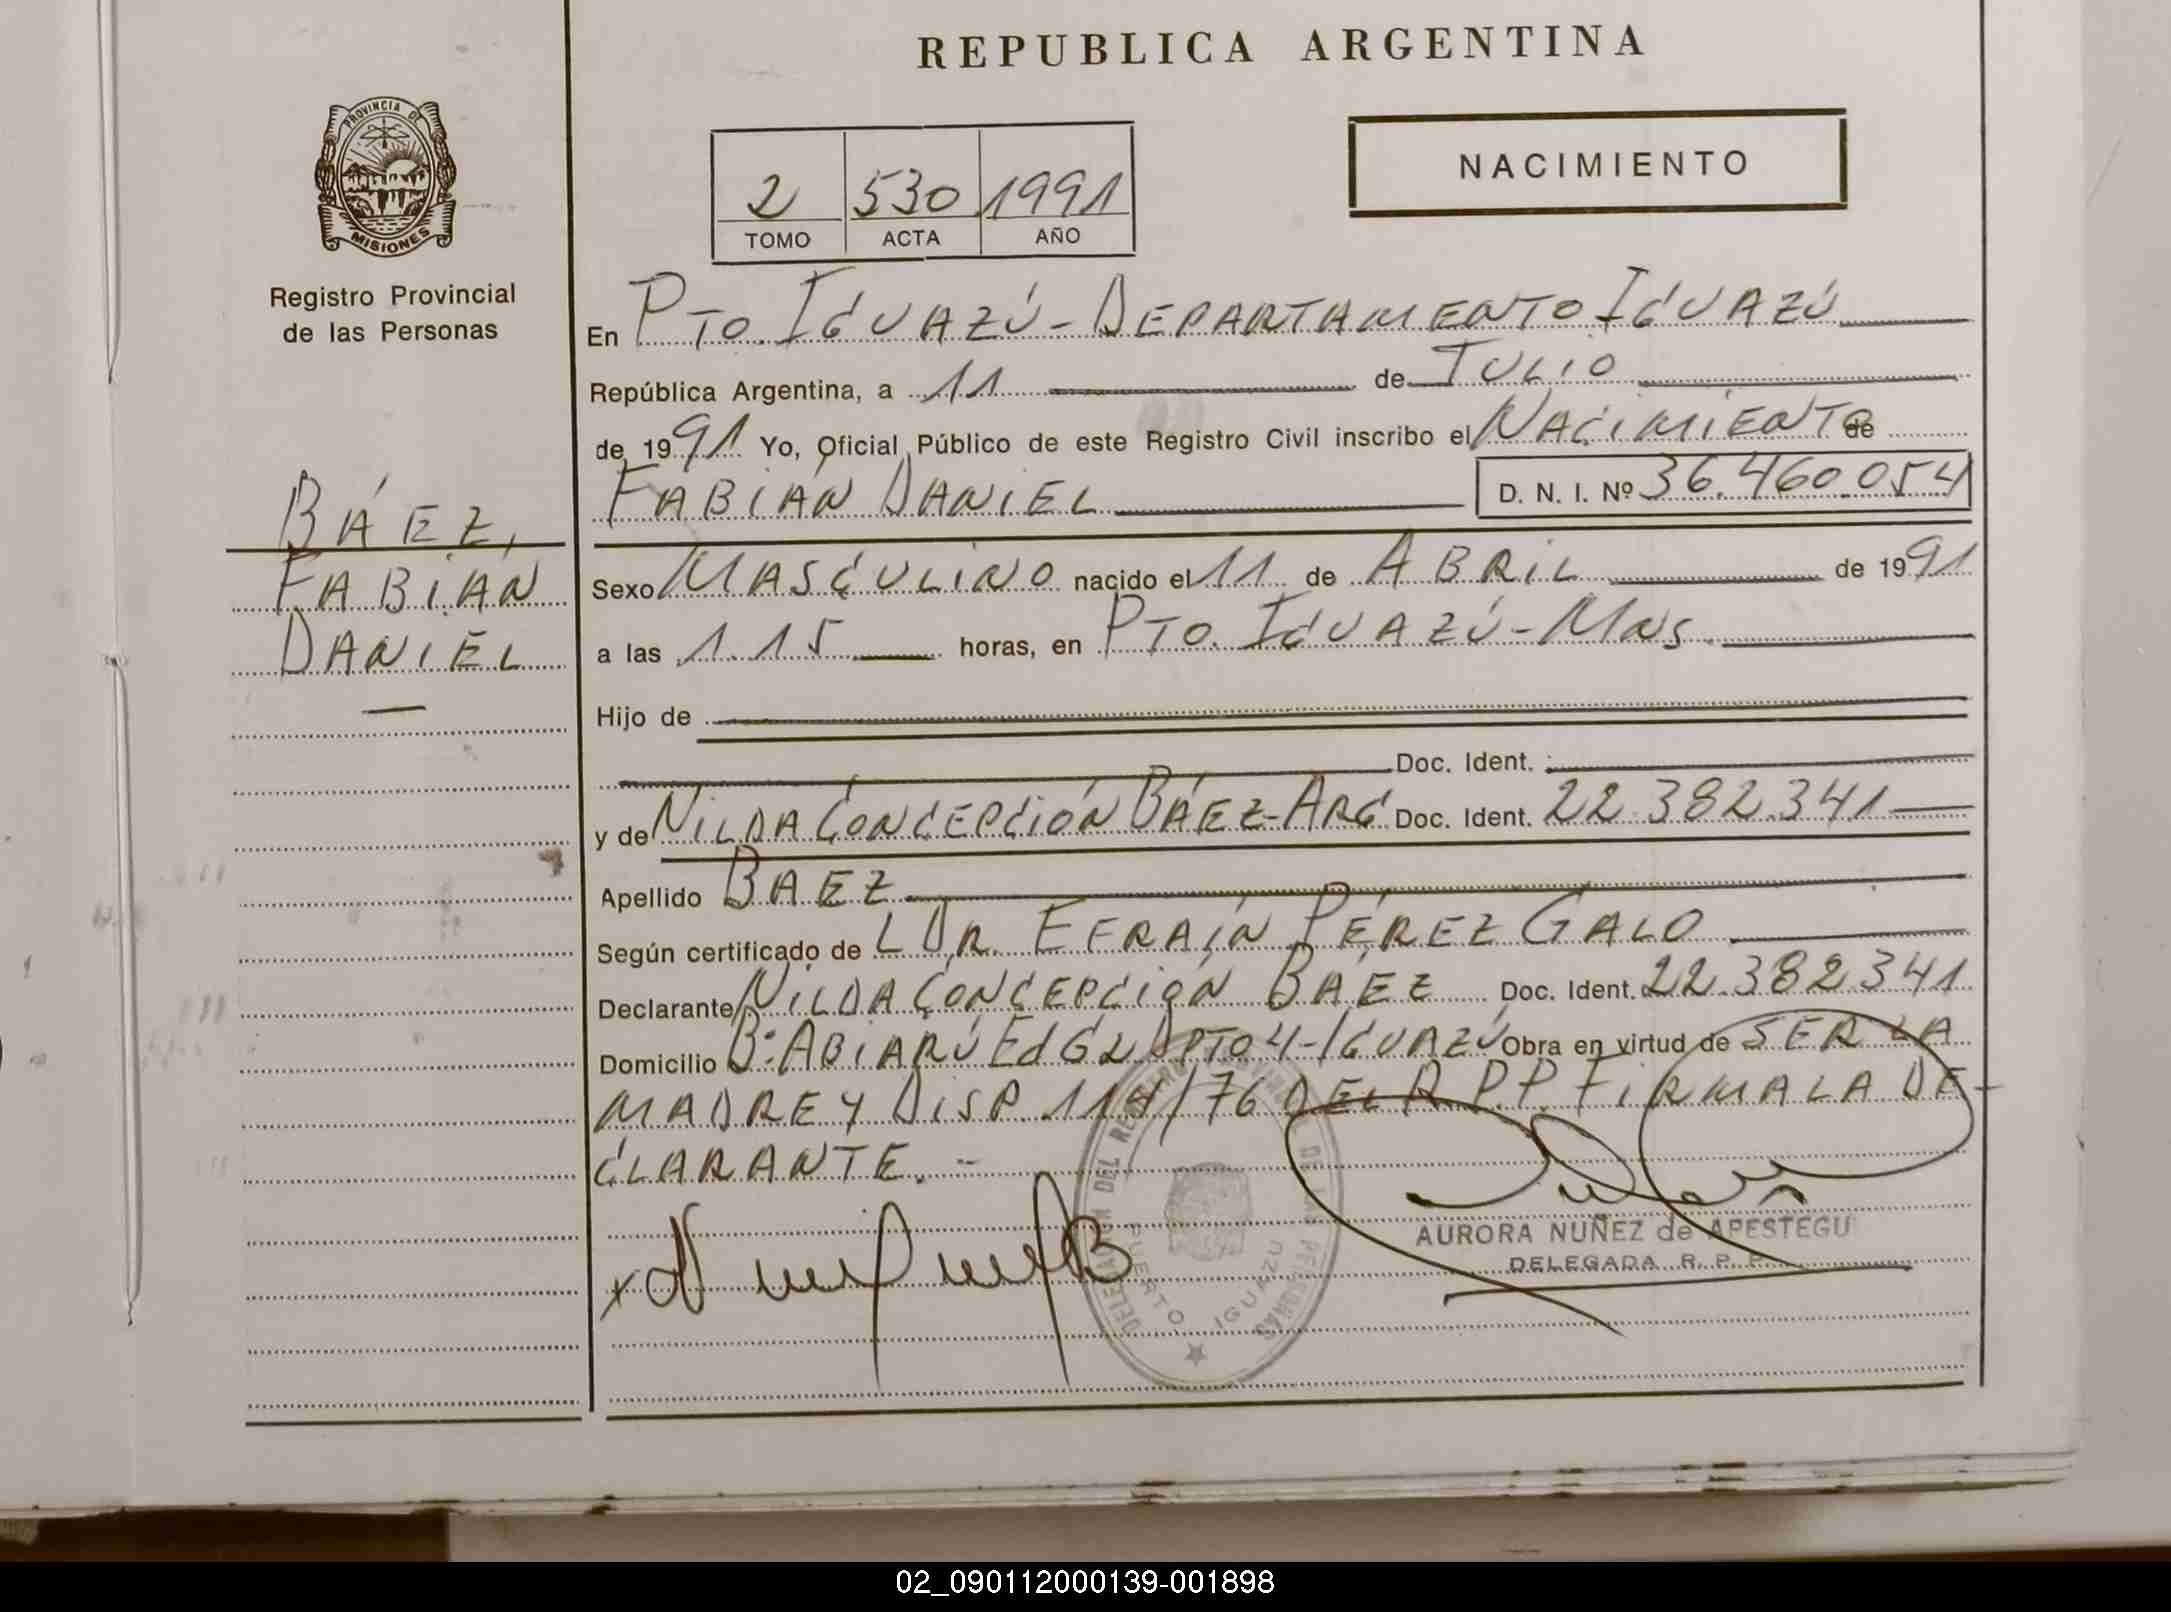 REPUBLICA ARGENTINA
PROVINCIA DE
MISIONES
Registro Provincial
de las Personas
2 530 1991
TOMO ACTA AÑO
NACIMIENTO
En PTO. IGUAZÚ - DEPARTAMENTO IGUAZÚ
República Argentina, a 11 de JULIO
de 1991 Yo, Oficial Público de este Registro Civil inscribo el NACIMIENTO de
FABIÁN DANIEL D. N. I. Nº 36.460.054
BÁEZ,
FABIÁN
DANIEL
Sexo MASCULINO nacido el 11 de ABRIL de 1991
a las 1.15 horas, en PTO. IGUAZÚ - MNS.
Hijo de
Doc. Ident.
y de NILDA CONCEPCIÓN BÁEZ - ARG. Doc. Ident. 22.382.341
Apellido BAEZ
Según certificado de L DR. EFRAÍN PÉREZ GALO
Declarante NILDA CONCEPCIÓN BÁEZ Doc. Ident. 22.382.341
Domicilio Bº ABIARÚ Ed G2 DPTO 4 - IGUAZÚ Obra en virtud de SER LA
MADRE Y DISP. 114/76 DEL R.P.P. FIRMA LA DE-
CLARANTE. -
DELEGACION DEL REGISTRO PROVINCIAL DE LAS PERSONAS
PUERTO IGUAZU
AURORA NUÑEZ de APESTEGU
DELEGADA R. P. P.
02_090112000139-001898